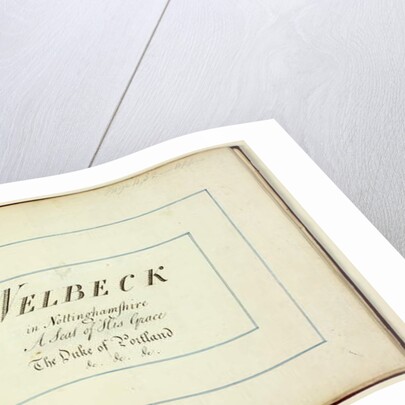 WELBECK
in Nottinghamshire
A Seat of His Grace
The Duke of Portland
&c. &c. &c.